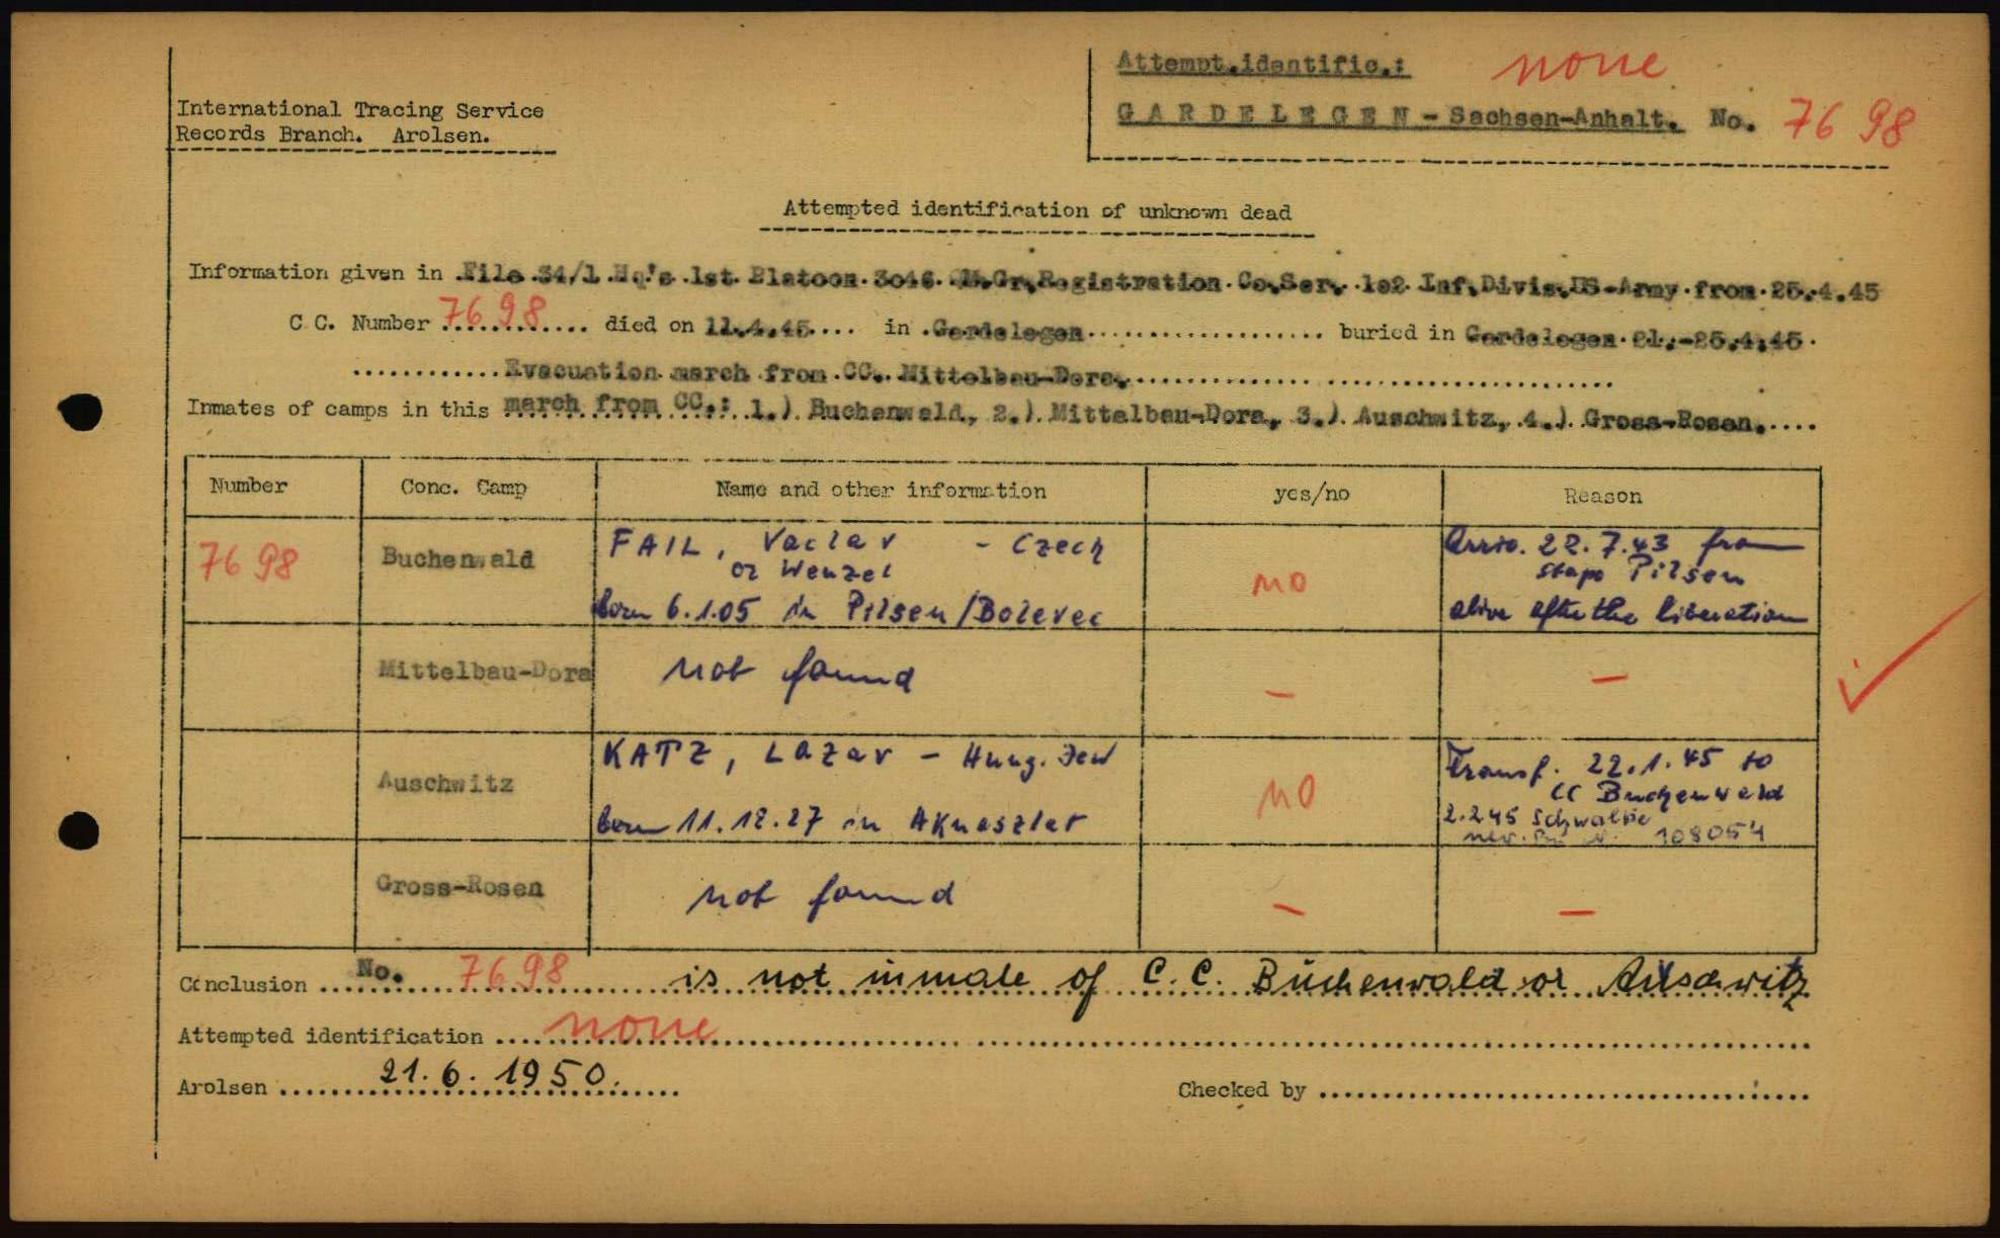 Attempt.identific.: none
International Tracing Service
Records Branch. Arolsen.
GARDELEGEN - Sachsen-Anhalt. No. 7698
Attempted identification of unknown dead
Information given in File 34/1 Hq's 1st Platoon 3046 QM.Gr.Registration Co.Ser. 102 Inf.Divis.US-Army from 25.4.45
C.C. Number 7698 died on 11.4.45 in Gardelegen buried in Gardelegen 21.-25.4.45
Evacuation march from CC. Mittelbau-Dora.
Inmates of camps in this march from CC.: 1.) Buchenwald, 2.) Mittelbau-Dora, 3.) Auschwitz, 4.) Gross-Rosen.
Number Conc. Camp Name and other information yes/no Reason
7698 Buchenwald FAIL, Vaclav - Czech
or Wenzel
born 6.1.05 in Pilsen/Bolevec
no
Arriv. 22.7.43 from
stapo Pilsen
alive after the liberation
Mittelbau-Dora not found - -
Auschwitz KATZ, Lazar - Hung. Jew
born 11.12.27 in Aknaszlat
no
Transf. 22.1.45 to
CC Buchenwald
2.2.45 Schwalbe
108054
Gross-Rosen not found - -
Conclusion No. 7698 is not inmate of C.C. Buchenwald or Auschwitz
Attempted identification none
Arolsen 21.6.1950.
Checked by